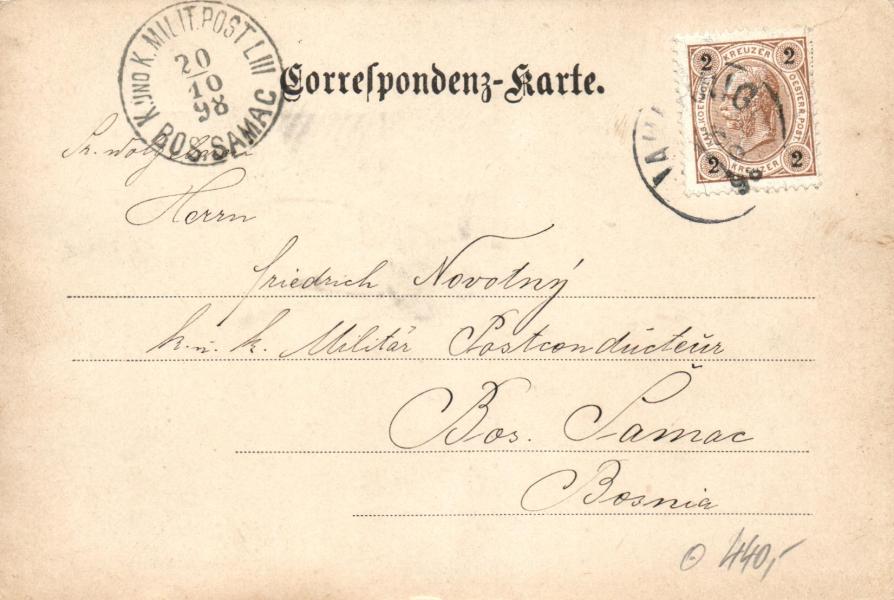 K. UND K. MILIT. POST LIII
20
10
98
BOS. SAMAC
Correspondenz-Karte.
2 KREUZER 2
KAIS. KOENIGL. OESTERR. POST
2 KREUZER 2
Herrn
Friedrich Novotný
k. u. k. Militär Postconducteur
Bos. Šamac
Bosnia
440,-